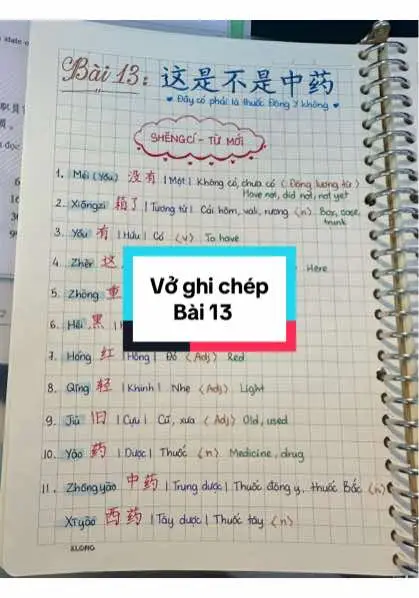 Bài 13: 这是不是中药
Đây có phải là thuốc Đông Y không
SHĒNGCÍ - TỪ MỚI
1. Méi (Yǒu) 没有 | Một | Không có, chưa có (Động lượng từ)
Have not, did not, not yet
2. Xiāngzi 箱子 | Tương tử | Cái hòm, vali, rương (n) Box, case,
trunk
3. Yǒu 有 | Hữu | Có (v) To have
4. Zhèr 这 Here
5. Zhòng 重
6. Hēi 黑
7. Hóng 红 | Hồng | Đỏ (Adj) Red
8. Qīng 轻 | Khinh | Nhẹ (Adj) Light
9. Jiù 旧 | Cựu | Cũ, xưa (Adj) Old, used
10. Yào 药 | Dược | Thuốc (n) Medicine, drug
11. Zhōngyào 中药 | Trung dược | Thuốc đông y, thuốc Bắc (n)
Xīyào 西药 | Tây dược | Thuốc tây (n)
KLONG
Vở ghi chép
Bài 13